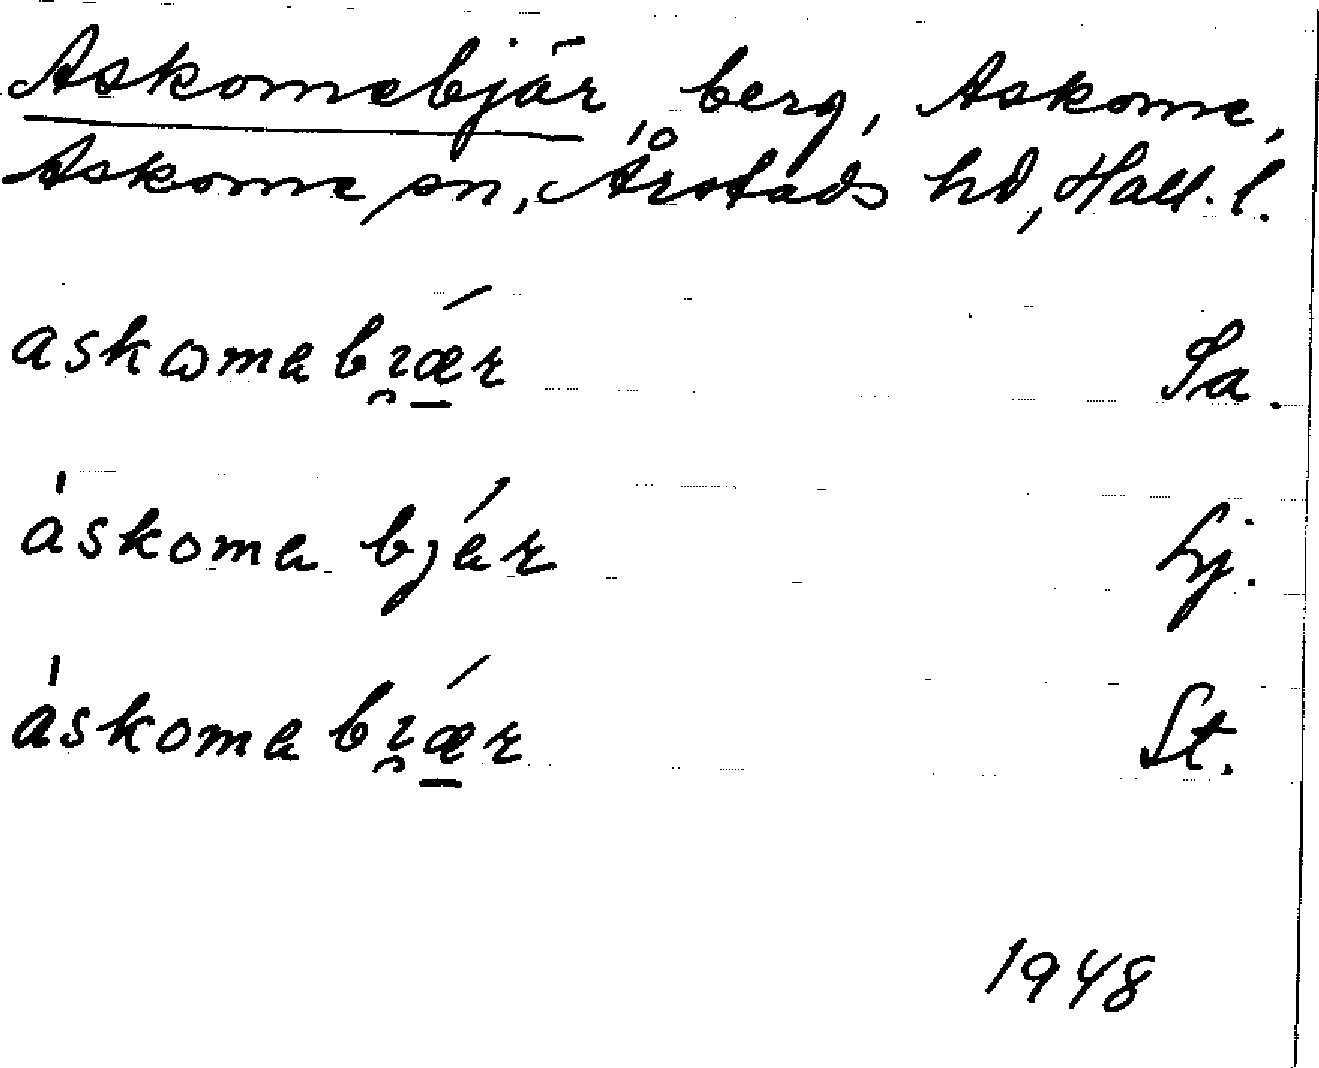 Askomebjär, berg, Askome,
Askome sn, Årstads hd, Hall. l.
askωmabı̯ǽ̠r Sa.
áskoma bjár Hj.
áskomabı̯ǽ̠r St.
1948